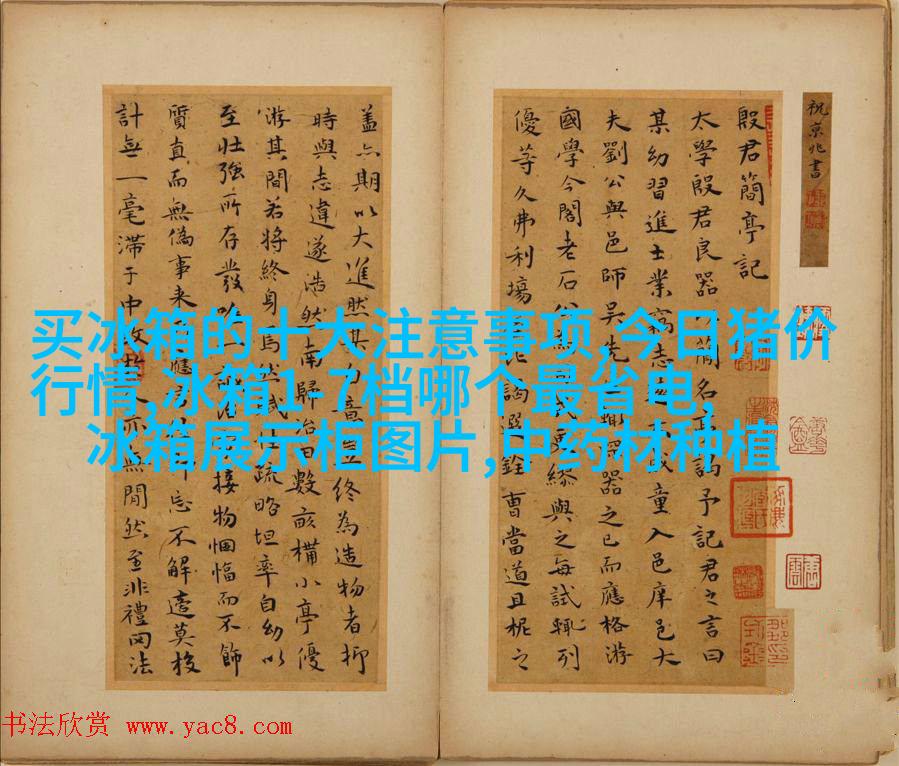 买冰箱的十大注意事项,今日猪价
行情,冰箱1-7档哪个最省电,
冰箱展示柜图片,中药材种植
祝京兆書
殷君簡亭記
太學殷君良器簡名予記君之言曰
某幼習進士業竊志童入邑庠邑大
夫劉公與邑師吳先器之已而應格游
國學今閣老石繆與之每試輒列
優等久弗利場選銓曹當道且柅之
蓋亦期以大進然其意終為造物者抑
時與志違遂浩然南歸治田數畝構小亭優
游其間若將終身焉然賦性疏略坦率自幼以
至壯強所存發接物悃愊而不飾
質直而無偽事來忘不解逢莫校
計無一毫滯于中故亦無間然至非禮罔法
书法欣赏 www.yac8.com